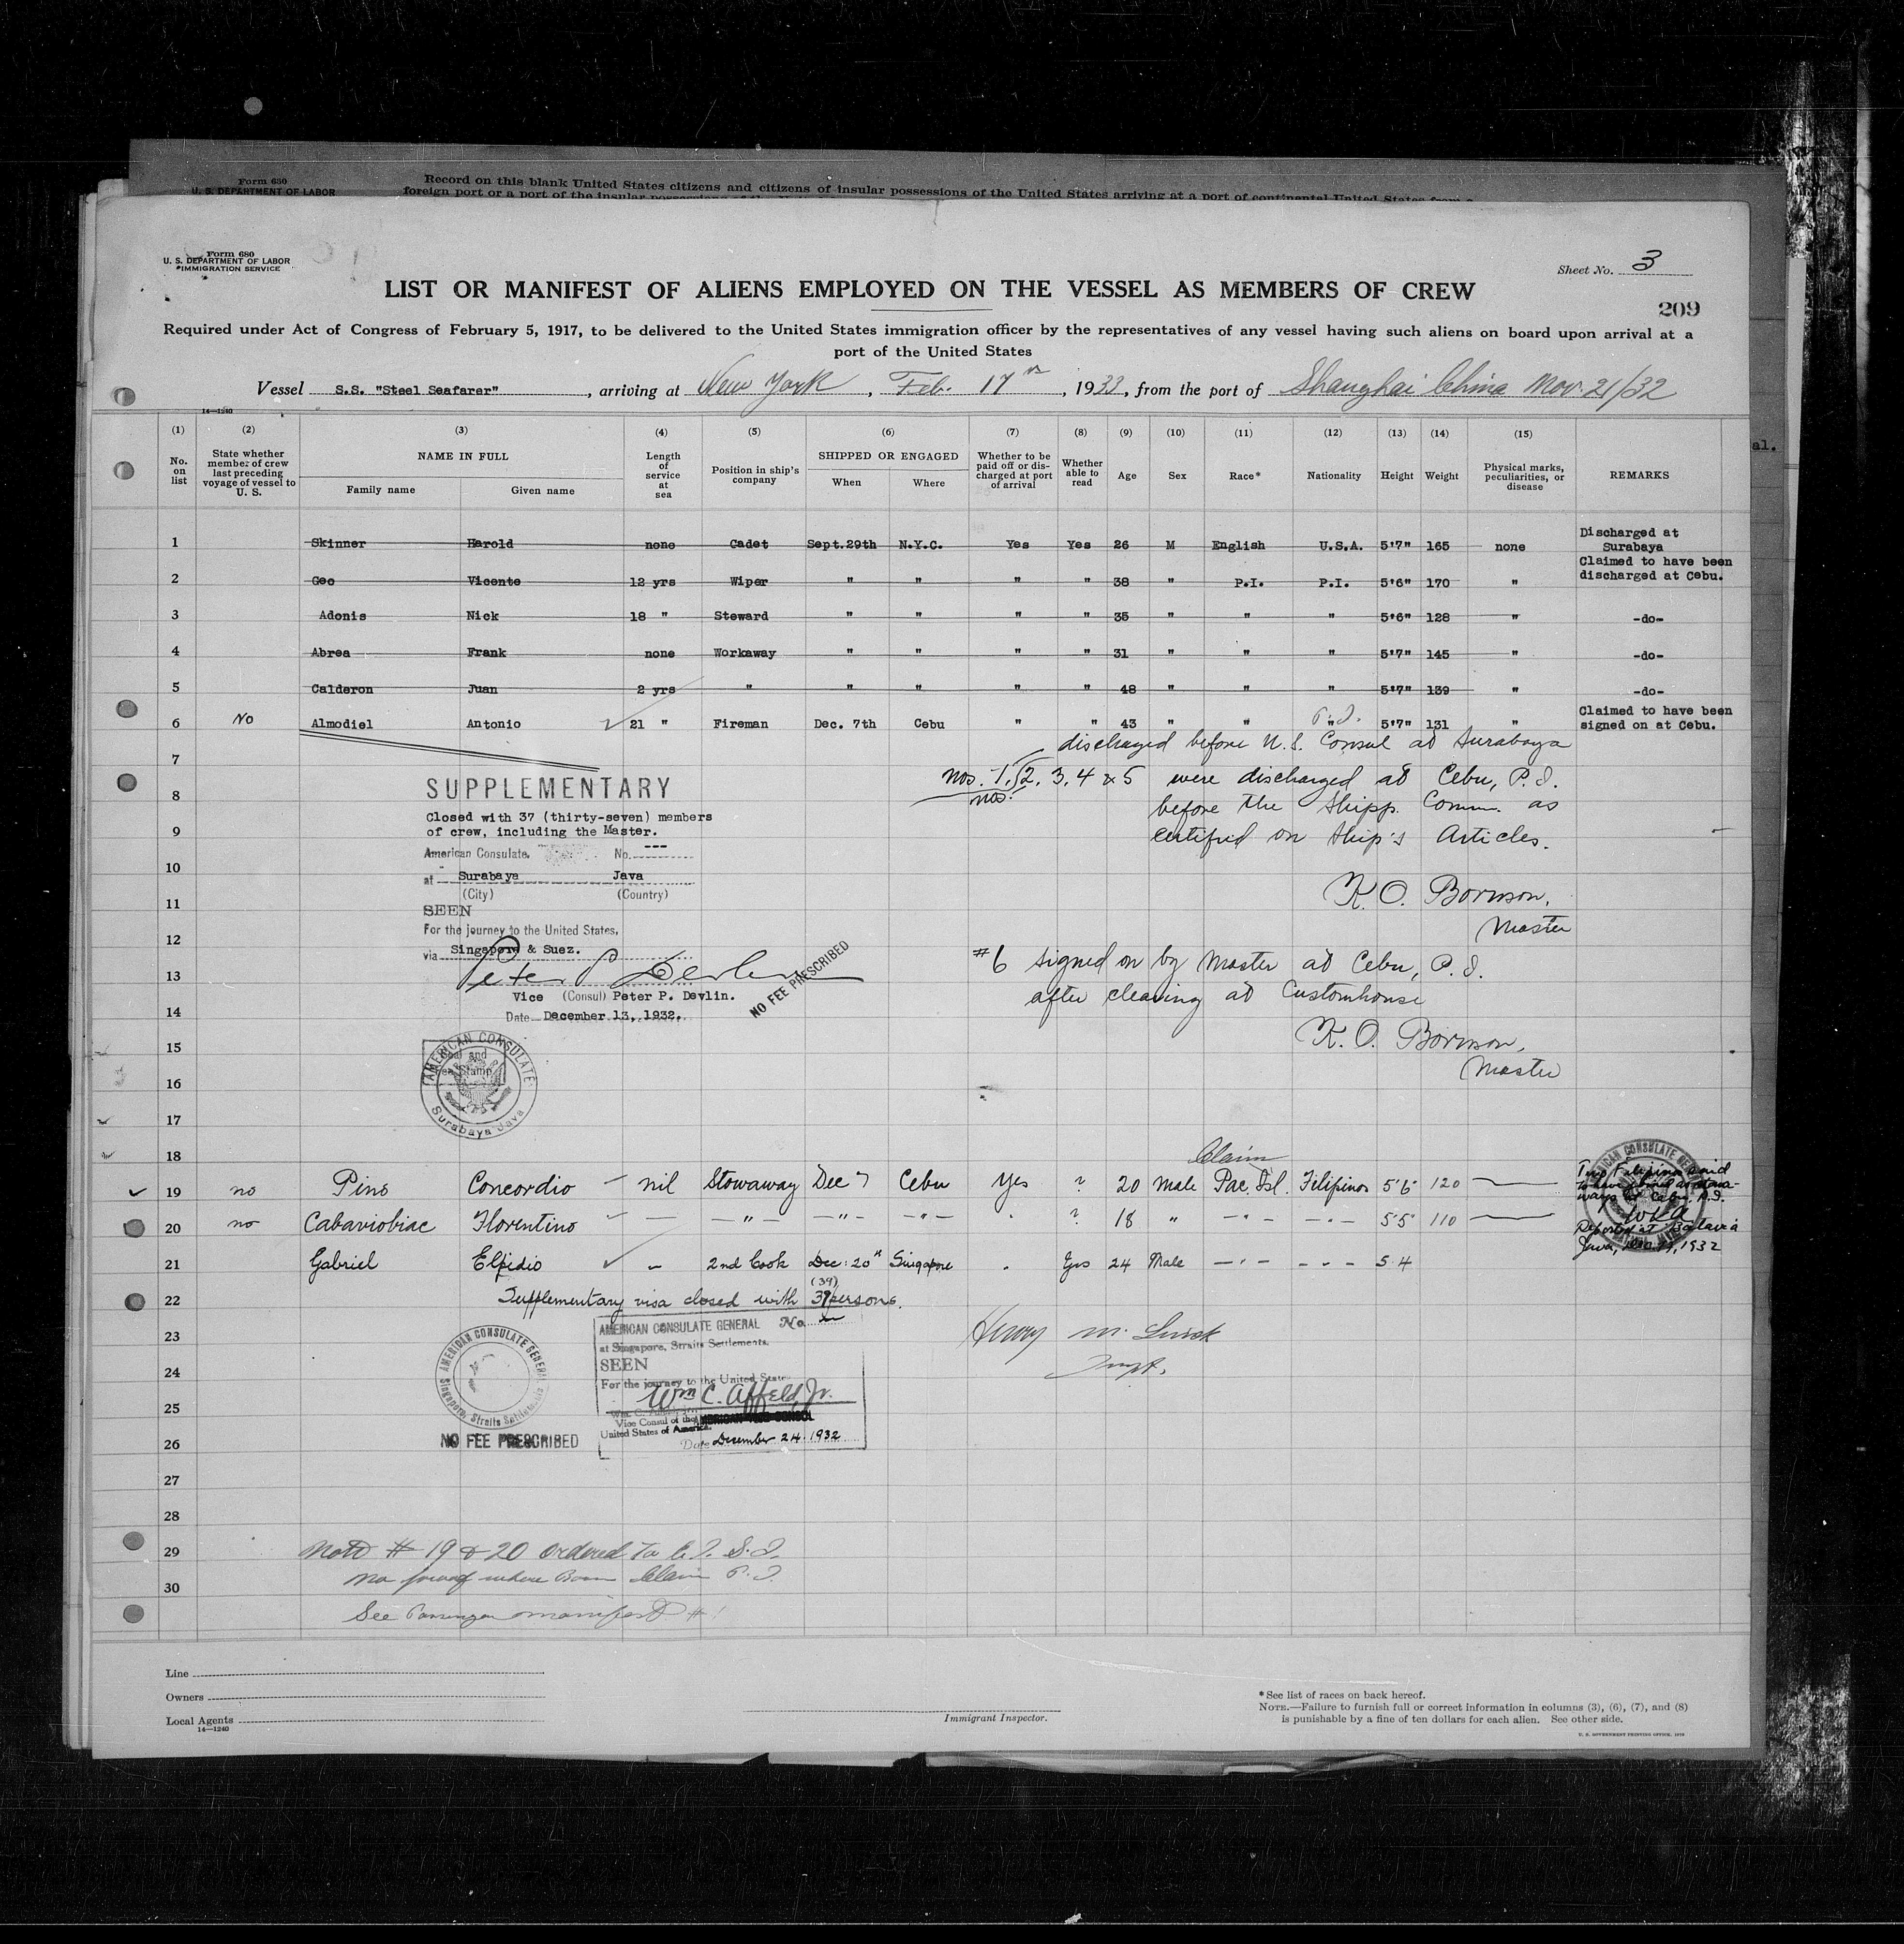 Form 630
U. S. DEPARTMENT OF LABOR
Record on this blank United States citizens and citizens of insular possessions of the United States arriving at a port of continental United States from a
foreign port or a port of the insular possessions of the
Form 680
U. S. DEPARTMENT OF LABOR
IMMIGRATION SERVICE
Sheet No. 3
LIST OR MANIFEST OF ALIENS EMPLOYED ON THE VESSEL AS MEMBERS OF CREW
209
Required under Act of Congress of February 5, 1917, to be delivered to the United States immigration officer by the representatives of any vessel having such aliens on board upon arrival at a
port of the United States
Vessel S.S. "Steel Seafarer", arriving at New York, Feb. 17th, 1933, from the port of Shanghai China Nov. 21/32
14—1240
al.
(1) (2) (3) (4) (5) (6) (7) (8) (9) (10) (11) (12) (13) (14) (15)
No. on list
State whether member of crew last preceding voyage of vessel to U. S.
NAME IN FULL
Family name Given name
Length of service at sea
Position in ship's company
SHIPPED OR ENGAGED
When Where
Whether to be paid off or discharged at port of arrival
Whether able to read
Age Sex Race* Nationality Height Weight
Physical marks, peculiarities, or disease
REMARKS
1 Skinner Harold none Cadet Sept.29th N.Y.C. Yes Yes 26 M English U.S.A. 5'7" 165 none Discharged at Surabaya
2 Geo Vicente 12 yrs Wiper " " " " 38 " P.I. P.I. 5'6" 170 " Claimed to have been discharged at Cebu.
3 Adonis Nick 18 " Steward " " " " 35 " " " 5'6" 128 " -do-
4 Abrea Frank none Workaway " " " " 31 " " " 5'7" 145 " -do-
5 Calderon Juan 2 yrs " " " " " 48 " " " 5'7" 139 " -do-
6 No Almodiel Antonio 21 " Fireman Dec. 7th Cebu " " 43 " " P.I. " 5'7" 131 " Claimed to have been signed on at Cebu.
discharged before U.S. Consul at Surabaya
7
nos. 1, 2, 3, 4 & 5 were discharged at Cebu, P.I.
nos.
8
before the Shipp. Comm. as
9
certified on Ship's Articles.
SUPPLEMENTARY
Closed with 37 (thirty-seven) members
of crew, including the Master.
American Consulate. No. ---
10
at Surabaya Java
(City) (Country)
K. O. Bornson,
11
SEEN
Master
For the journey to the United States,
12
via Singapore & Suez.
#6 signed on by Master at Cebu, P.I.
13
Peter P Devlin
after clearing at Customhouse
Vice (Consul) Peter P. Devlin.
NO FEE PRESCRIBED
14
Date December 13, 1932.
K. O. Bornson,
15
Master
AMERICAN CONSULATE
Surabaya Java
16
17
18
Claim
19 no Pino Concordio nil Stowaway Dec 7 Cebu Yes ? 20 Male Pac. Isl. Filipinos 5'6" 120
20 no Cabaviobiac Florentino — — " — — " — — " — ? 18 " — " — — " — 5'5" 110
Two Filipinos said
to have boarded as stowa-
ways at Cebu, P.I.
WCA
Reported at Batavia
Java, Dec. 19, 1932
21 Gabriel Elpidio 2nd Cook Dec: 20th Singapore Yes 24 Male — " — — " — 5.4
22
(39)
Supplementary visa closed with 39 persons.
23
AMERICAN CONSULATE GENERAL
Singapore, Straits Settlements
NO FEE PRESCRIBED
AMERICAN CONSULATE GENERAL No.
at Singapore, Straits Settlements.
SEEN
For the journey to the United States
Wm C. Affeld, Jr.
Vice Consul of the
United States of America.
Date December 24. 1932
24
25
26
27
28
29
Note # 19 & 20 ordered to
30
no proof where Born Claim P.I.
See Passenger manifest # 1
Line
Owners
Local Agents
14—1240
Immigrant Inspector.
* See list of races on back hereof.
NOTE.—Failure to furnish full or correct information in columns (3), (6), (7), and (8)
is punishable by a fine of ten dollars for each alien. See other side.